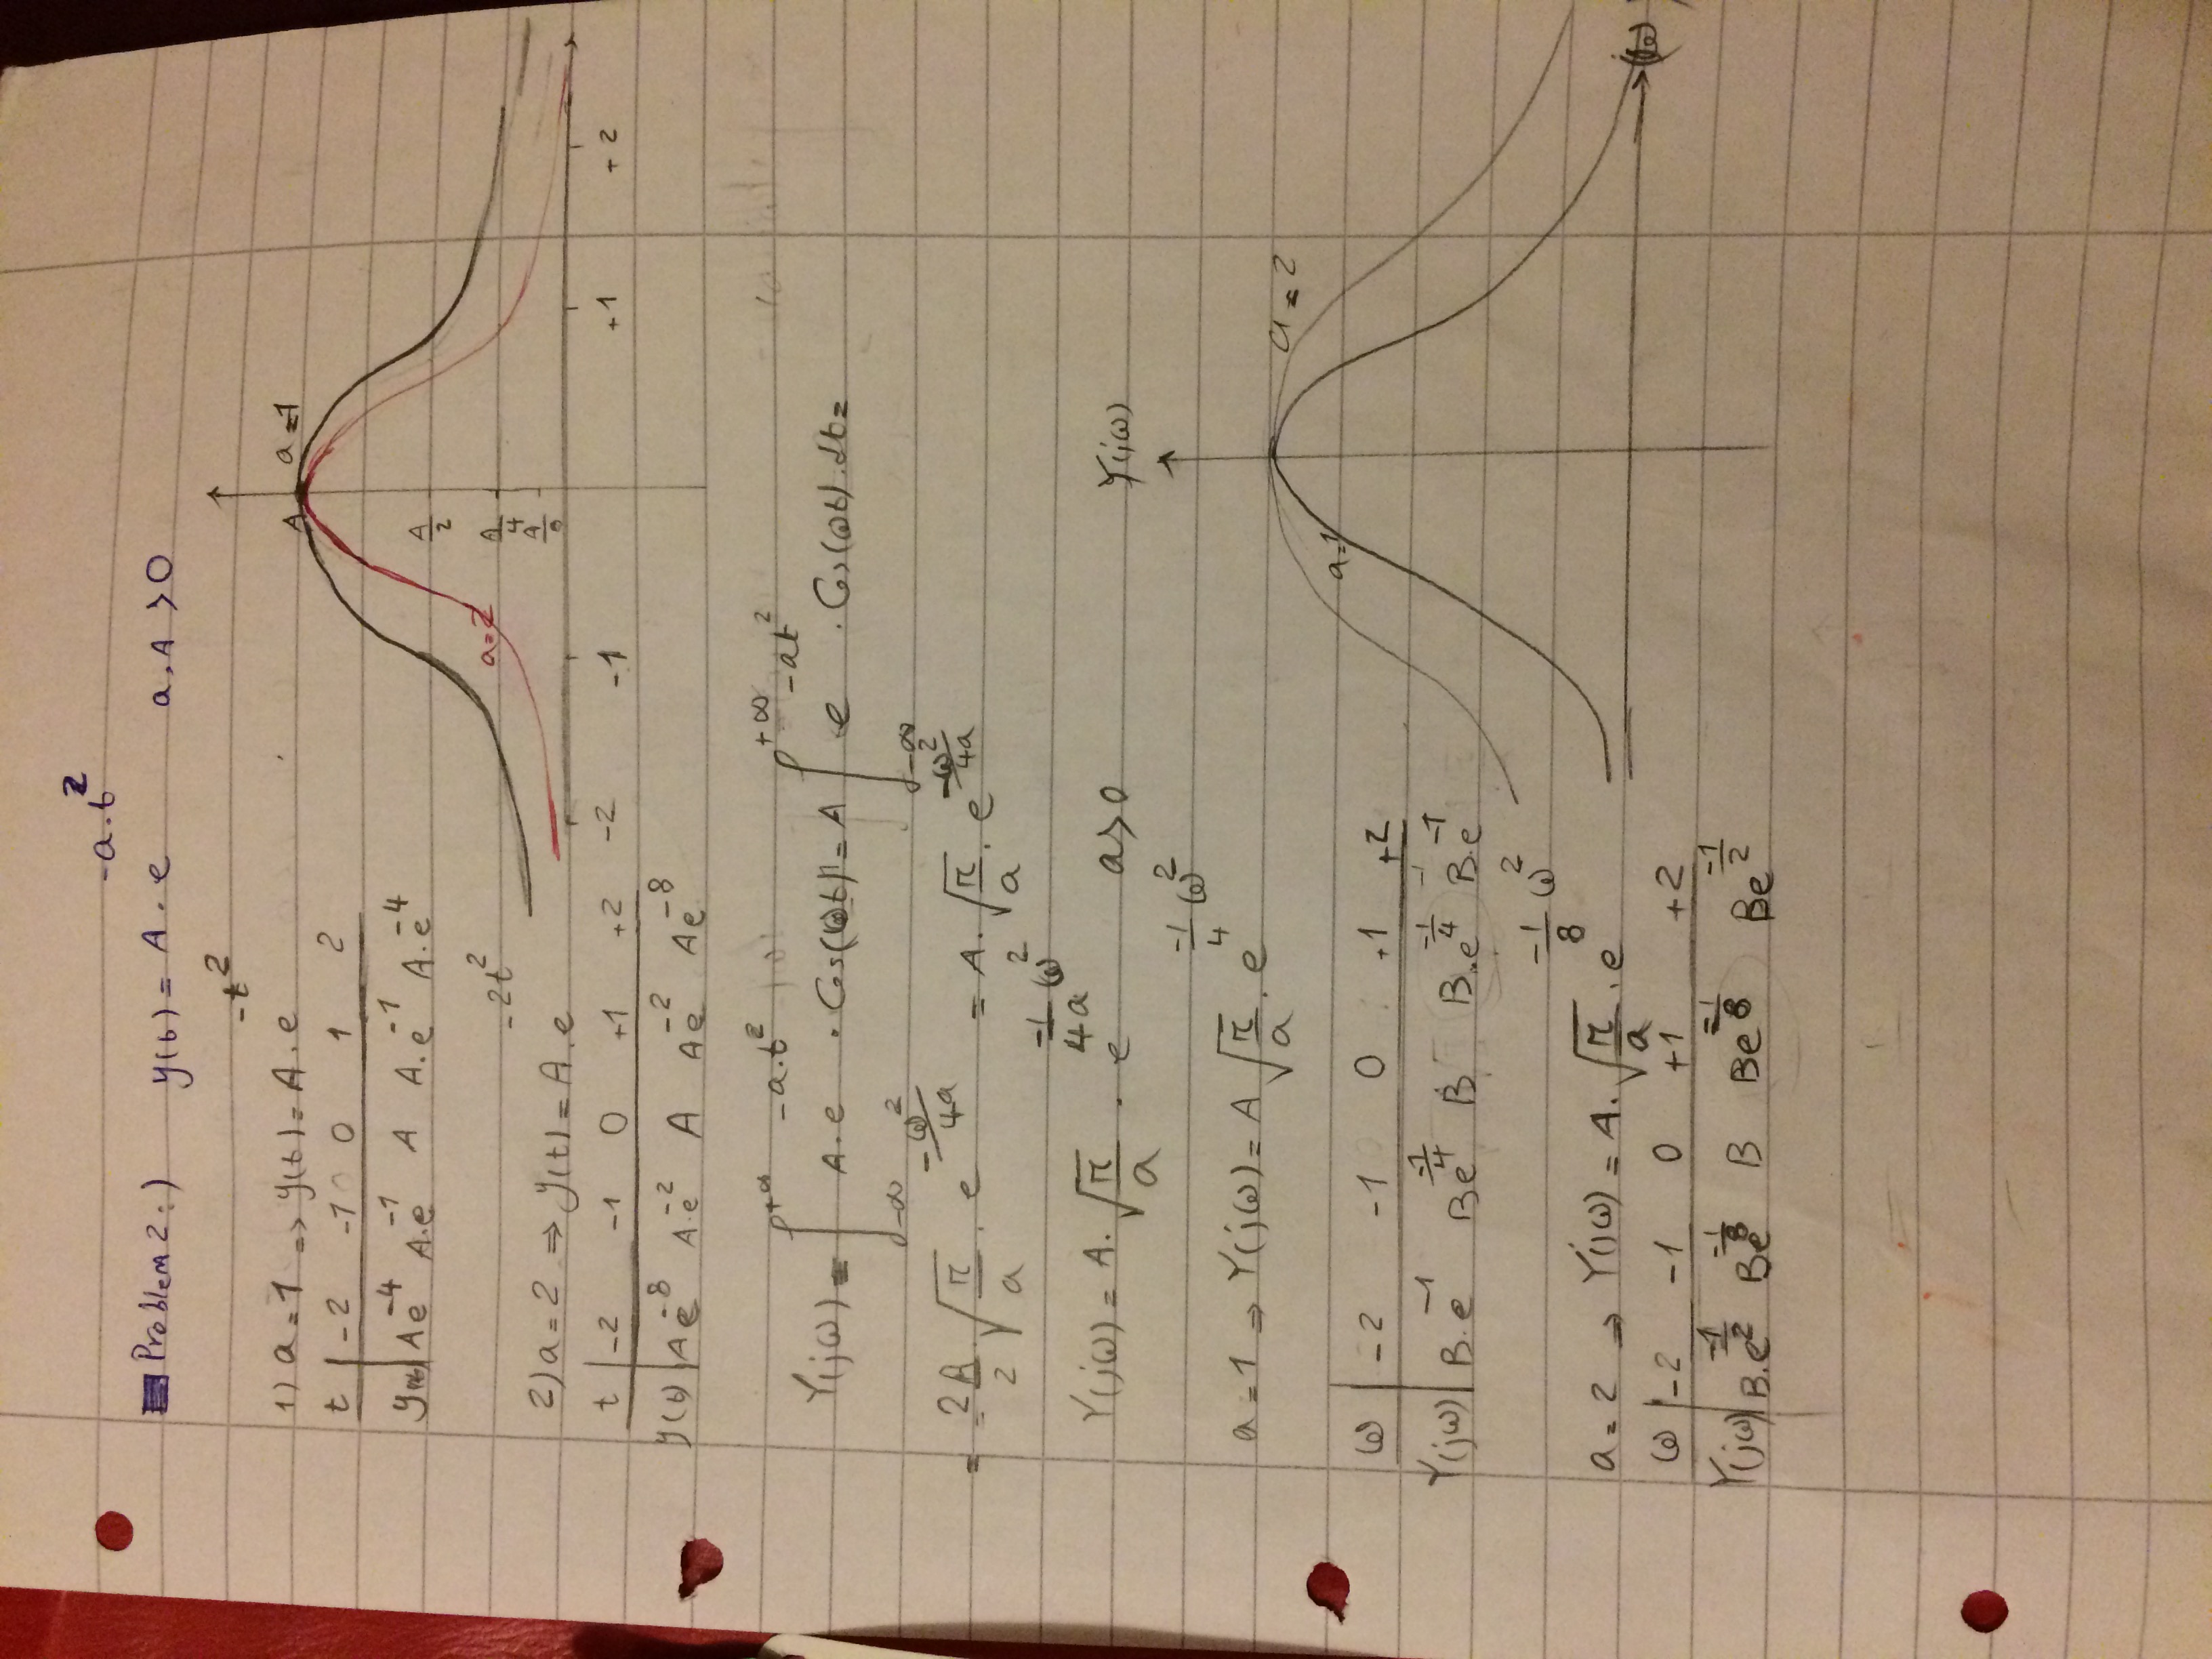 Problem 2:) y(t) = A . e^{-a.t^2} a,A > 0
1) a = 1 => y(t) = A . e^{-t^2}
t | -2 -1 0 1 2
y(t) | Ae^{-4} A.e^{-1} A A.e^{-1} A.e^{-4}
2) a = 2 => y(t) = A . e^{-2t^2}
t | -2 -1 0 +1 +2
y(t) | Ae^{-8} A.e^{-2} A Ae^{-2} Ae^{-8}
A a=1
A/2
a=2 A/4
-2 -1 +1 +2
Y(jω) = ∫_{-∞}^{+∞} A.e^{-a.t^2} . Cos(ωt) = A ∫_{-∞}^{+∞} e^{-at^2} . Cos(ωt).dt =
= 2A/2 . √(π/a) . e^{-ω^2/4a} = A . √(π/a) . e^{-ω^2/4a}
Y(jω) = A . √(π/a) . e^{-1/4a ω^2} a > 0
a = 1 => Y(jω) = A √(π/a) . e^{-1/4 ω^2}
ω | -2 -1 0 +1 +2
Y(jω) | B.e^{-1} Be^{-1/4} B B.e^{-1/4} B.e^{-1}
a = 2 => Y(jω) = A . √(π/a) . e^{-1/8 ω^2}
ω | -2 -1 0 +1 +2
Y(jω) | B.e^{-1/2} Be^{-1/8} B Be^{-1/8} Be^{-1/2}
Y(jω)
a = 2
a=1